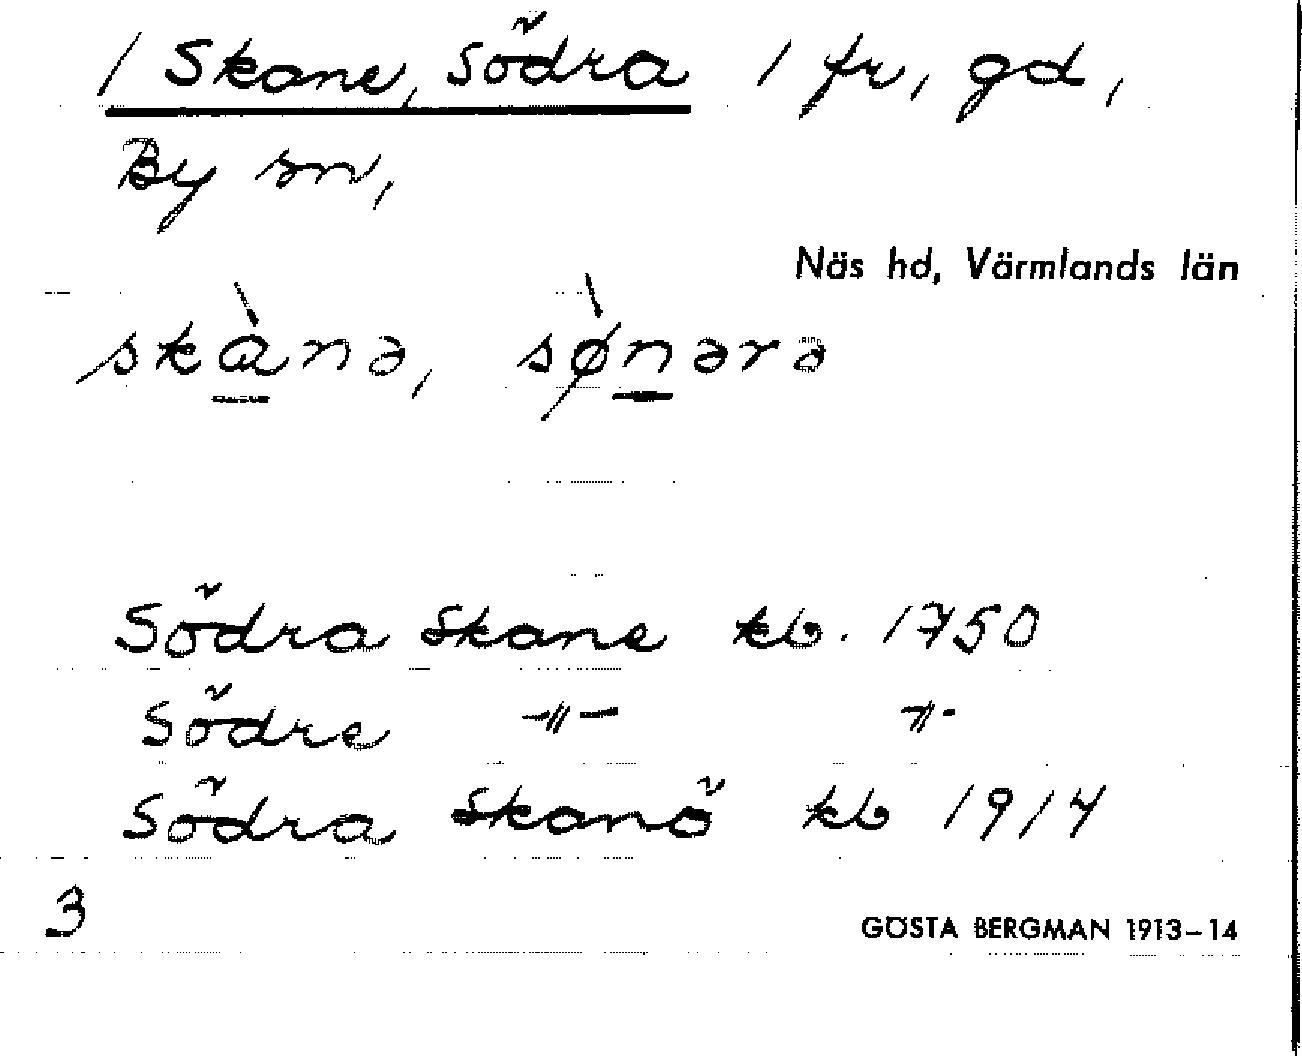 / Skane, Södra / fr, gd,
By sn,
Näs hd, Värmlands län
skànə, sø̀nərə
Södra Skane kb. 1750
Södre -"- -"-
Södra Skanö kb 1914
3
GÖSTA BERGMAN 1913–14